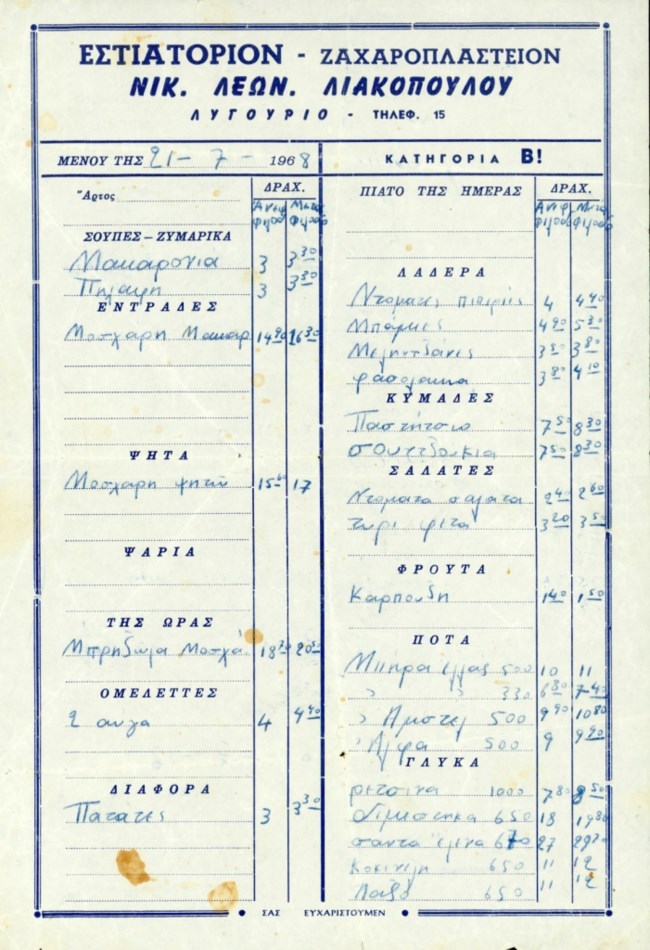 ΕΣΤΙΑΤΟΡΙΟΝ - ΖΑΧΑΡΟΠΛΑΣΤΕΙΟΝ
ΝΙΚ. ΛΕΩΝ. ΛΙΑΚΟΠΟΥΛΟΥ
ΛΥΓΟΥΡΙΟ - ΤΗΛΕΦ. 15
ΜΕΝΟΥ ΤΗΣ 21-7-1968
ΔΡΑΧ.
Ἄρτος
ΣΟΥΠΕΣ – ΖΥΜΑΡΙΚΑ
Μακαρονια 3 3 30
Πηλαφη 3 3 30
ΕΝΤΡΑΔΕΣ
Μοσχαρη Μακαρ 14 90 16 30
ΨΗΤΑ
Μοσχαρη ψητον 17
ΨΑΡΙΑ
ΤΗΣ ΩΡΑΣ
Μπρηζωλα Μοσχα. 20 50
ΟΜΕΛΕΤΤΕΣ
2 αυγα 4 4 40
ΔΙΑΦΟΡΑ
Πατατες 3 3 30
ΚΑΤΗΓΟΡΙΑ Β!
ΠΙΑΤΟ ΤΗΣ ΗΜΕΡΑΣ
ΔΡΑΧ.
ΛΑΔΕΡΑ
Ντοματες 4 4 40
Μπαμιες 4 90 5 30
Μεληντζανες 3 80
φασολακια 3 80 4 10
ΚΥΜΑΔΕΣ
Παστητσιο 7 50 8 30
σουτζουκια 7 50 8 30
ΣΑΛΑΤΕΣ
Ντοματα σαλατα 2 40 2 60
τυρι φετα 3 20 3 50
ΦΡΟΥΤΑ
Καρπουζη 1 40 1 50
ΠΟΤΑ
Μπηρα ελλας 500 10 11
" " 330 6 80 7 40
" Αμστελ 500 9 90 10 80
" Αλφα 500 9 9 90
ΓΛΥΚΑ
ρετσινα 1000 7 80 8 50
Διμεστηκα 650 18 19 80
σαντα Ελενα 670 27 29 70
Κοκινελη 650 11 12
650 11 12
ΣΑΣ ΕΥΧΑΡΙΣΤΟΥΜΕΝ